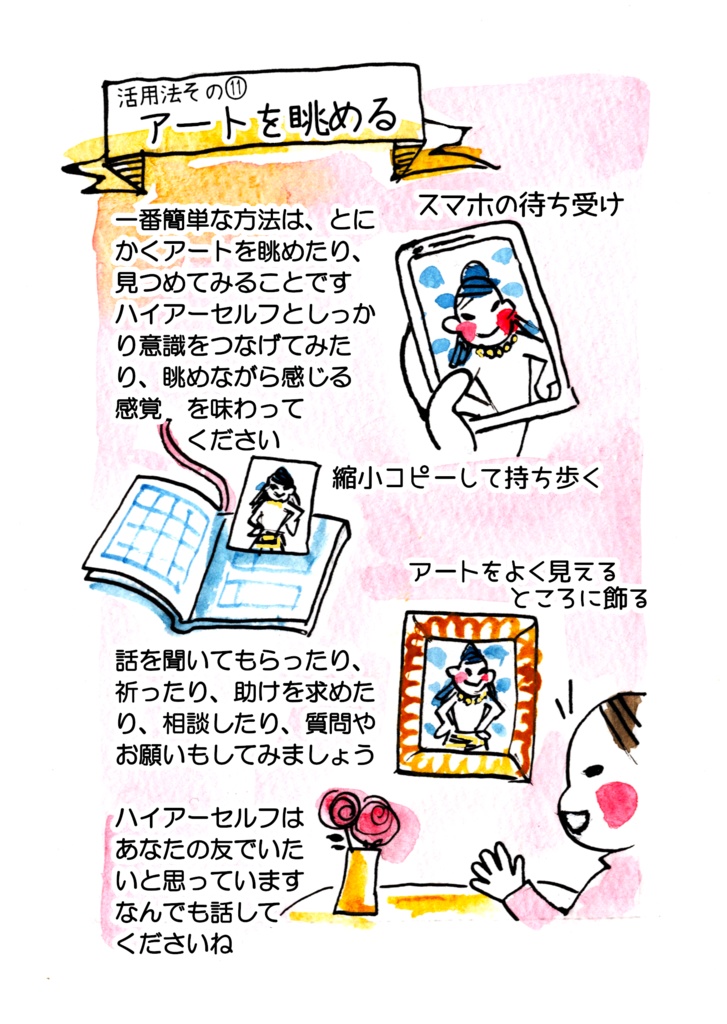 活用法その⑪
アートを眺める
スマホの待ち受け
一番簡単な方法は、とに
かくアートを眺めたり、
見つめてみることです
ハイアーセルフとしっか
り意識をつなげてみた
り、眺めながら感じる
感覚、を味わって
ください
縮小コピーして持ち歩く
アートをよく見える
ところに飾る
話を聞いてもらったり、
祈ったり、助けを求めた
り、相談したり、質問や
お願いもしてみましょう
ハイアーセルフは
あなたの友でいた
いと思っています
なんでも話して
くださいね